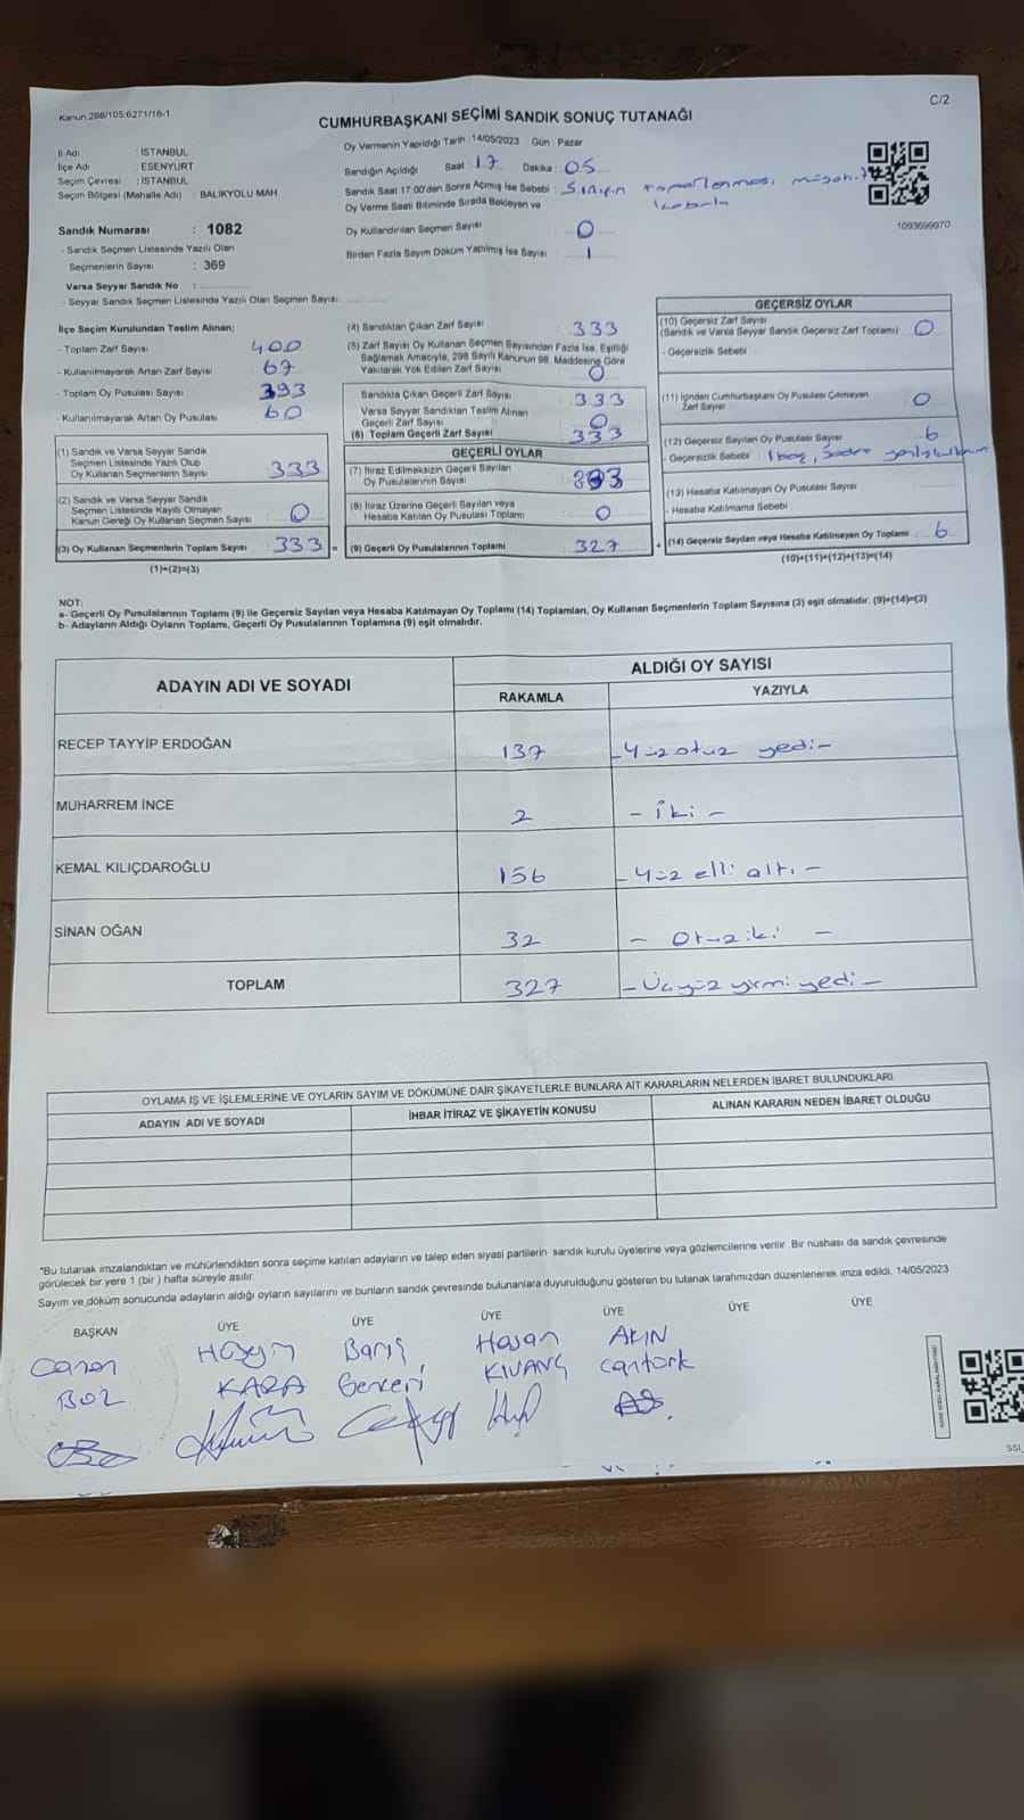 Kanun.298/105:6271/16-1
C/2
CUMHURBAŞKANI SEÇİMİ SANDIK SONUÇ TUTANAĞI
İl Adı : İSTANBUL
İlçe Adı : ESENYURT
Seçim Çevresi : İSTANBUL
Seçim Bölgesi (Mahalle Adı) : BALIKYOLU MAH
Oy Vermenin Yapıldığı Tarih : 14/05/2023 Gün : Pazar
Sandığın Açıldığı Saat 17 Dakika : 05
Sandık Saat 17:00'den Sonra Açılmış İse Sebebi :
Oy Verme Saati Bitiminde Sırada Bekleyen ve
Oy Kullandırılan Seçmen Sayısı 0
Birden Fazla Sayım Döküm Yapılmış İse Sayısı 1
1093699070
Sandık Numarası : 1082
- Sandık Seçmen Listesinde Yazılı Olan
Seçmenlerin Sayısı : 369
Varsa Seyyar Sandık No :
- Seyyar Sandık Seçmen Listesinde Yazılı Olan Seçmen Sayısı
İlçe Seçim Kurulundan Teslim Alınan;
- Toplam Zarf Sayısı 400
- Kullanılmayarak Artan Zarf Sayısı 67
- Toplam Oy Pusulası Sayısı 393
- Kullanılmayarak Artan Oy Pusulası 60
(1) Sandık ve Varsa Seyyar Sandık
Seçmen Listesinde Yazılı Olup
Oy Kullanan Seçmenlerin Sayısı 333
(2) Sandık ve Varsa Seyyar Sandık
Seçmen Listesinde Kayıtlı Olmayan
Kanun Gereği Oy Kullanan Seçmen Sayısı 0
(3) Oy Kullanan Seçmenlerin Toplam Sayısı 333 =
(1)+(2)=(3)
(4) Sandıktan Çıkan Zarf Sayısı 333
(5) Zarf Sayısı Oy Kullanan Seçmen Sayısından Fazla İse, Eşitliği
Sağlamak Amacıyla, 298 Sayılı Kanunun 98. Maddesine Göre
Yakılarak Yok Edilen Zarf Sayısı 0
Sandıkta Çıkan Geçerli Zarf Sayısı 333
Varsa Seyyar Sandıktan Teslim Alınan
Geçerli Zarf Sayısı 0
(6) Toplam Geçerli Zarf Sayısı 333
GEÇERLİ OYLAR
(7) İtiraz Edilmeksizin Geçerli Sayılan
Oy Pusulalarının Sayısı
(8) İtiraz Üzerine Geçerli Sayılan veya
Hesaba Katılan Oy Pusulası Toplamı 0
(9) Geçerli Oy Pusulalarının Toplamı 327
GEÇERSİZ OYLAR
(10) Geçersiz Zarf Sayısı
(Sandık ve Varsa Seyyar Sandık Geçersiz Zarf Toplamı) 0
- Geçersizlik Sebebi
(11) İçinden Cumhurbaşkanı Oy Pusulası Çıkmayan
Zarf Sayısı 0
(12) Geçersiz Sayılan Oy Pusulası Sayısı 6
- Geçersizlik Sebebi
(13) Hesaba Katılmayan Oy Pusulası Sayısı
- Hesaba Katılmama Sebebi
+ (14) Geçersiz Sayılan veya Hesaba Katılmayan Oy Toplamı 6
(10)+(11)+(12)+(13)=(14)
NOT:
a- Geçerli Oy Pusulalarının Toplamı (9) ile Geçersiz Sayılan veya Hesaba Katılmayan Oy Toplamı (14) Toplamları, Oy Kullanan Seçmenlerin Toplam Sayısına (3) eşit olmalıdır. (9)+(14)=(3)
b- Adayların Aldığı Oyların Toplamı, Geçerli Oy Pusulalarının Toplamına (9) eşit olmalıdır.
ADAYIN ADI VE SOYADI
ALDIĞI OY SAYISI
RAKAMLA YAZIYLA
RECEP TAYYİP ERDOĞAN 137 - Yüz otuz yedi -
MUHARREM İNCE 2 - İki -
KEMAL KILIÇDAROĞLU 156 - Yüz elli altı -
SİNAN OĞAN 32 - Otuz iki -
TOPLAM 327 - Üçyüz yirmi yedi -
OYLAMA İŞ VE İŞLEMLERİNE VE OYLARIN SAYIM VE DÖKÜMÜNE DAİR ŞİKAYETLERLE BUNLARA AİT KARARLARIN NELERDEN İBARET BULUNDUKLARI
ADAYIN ADI VE SOYADI İHBAR İTİRAZ VE ŞİKAYETİN KONUSU ALINAN KARARIN NEDEN İBARET OLDUĞU
"Bu tutanak imzalandıktan ve mühürlendikten sonra seçime katılan adayların ve talep eden siyasi partilerin sandık kurulu üyelerine veya gözlemcilerine verilir. Bir nüshası da sandık çevresinde
görülecek bir yere 1 (bir) hafta süreyle asılır.
Sayım ve döküm sonucunda adayların aldığı oyların sayılarını ve bunların sandık çevresinde bulunanlara duyurulduğunu gösteren bu tutanak tarafımızdan düzenlenerek imza edildi. 14/05/2023
BAŞKAN ÜYE ÜYE ÜYE ÜYE ÜYE ÜYE
Caner Hüseyin Barış Hasan AKIN
BOZ KARA KIVANÇ Cantürk